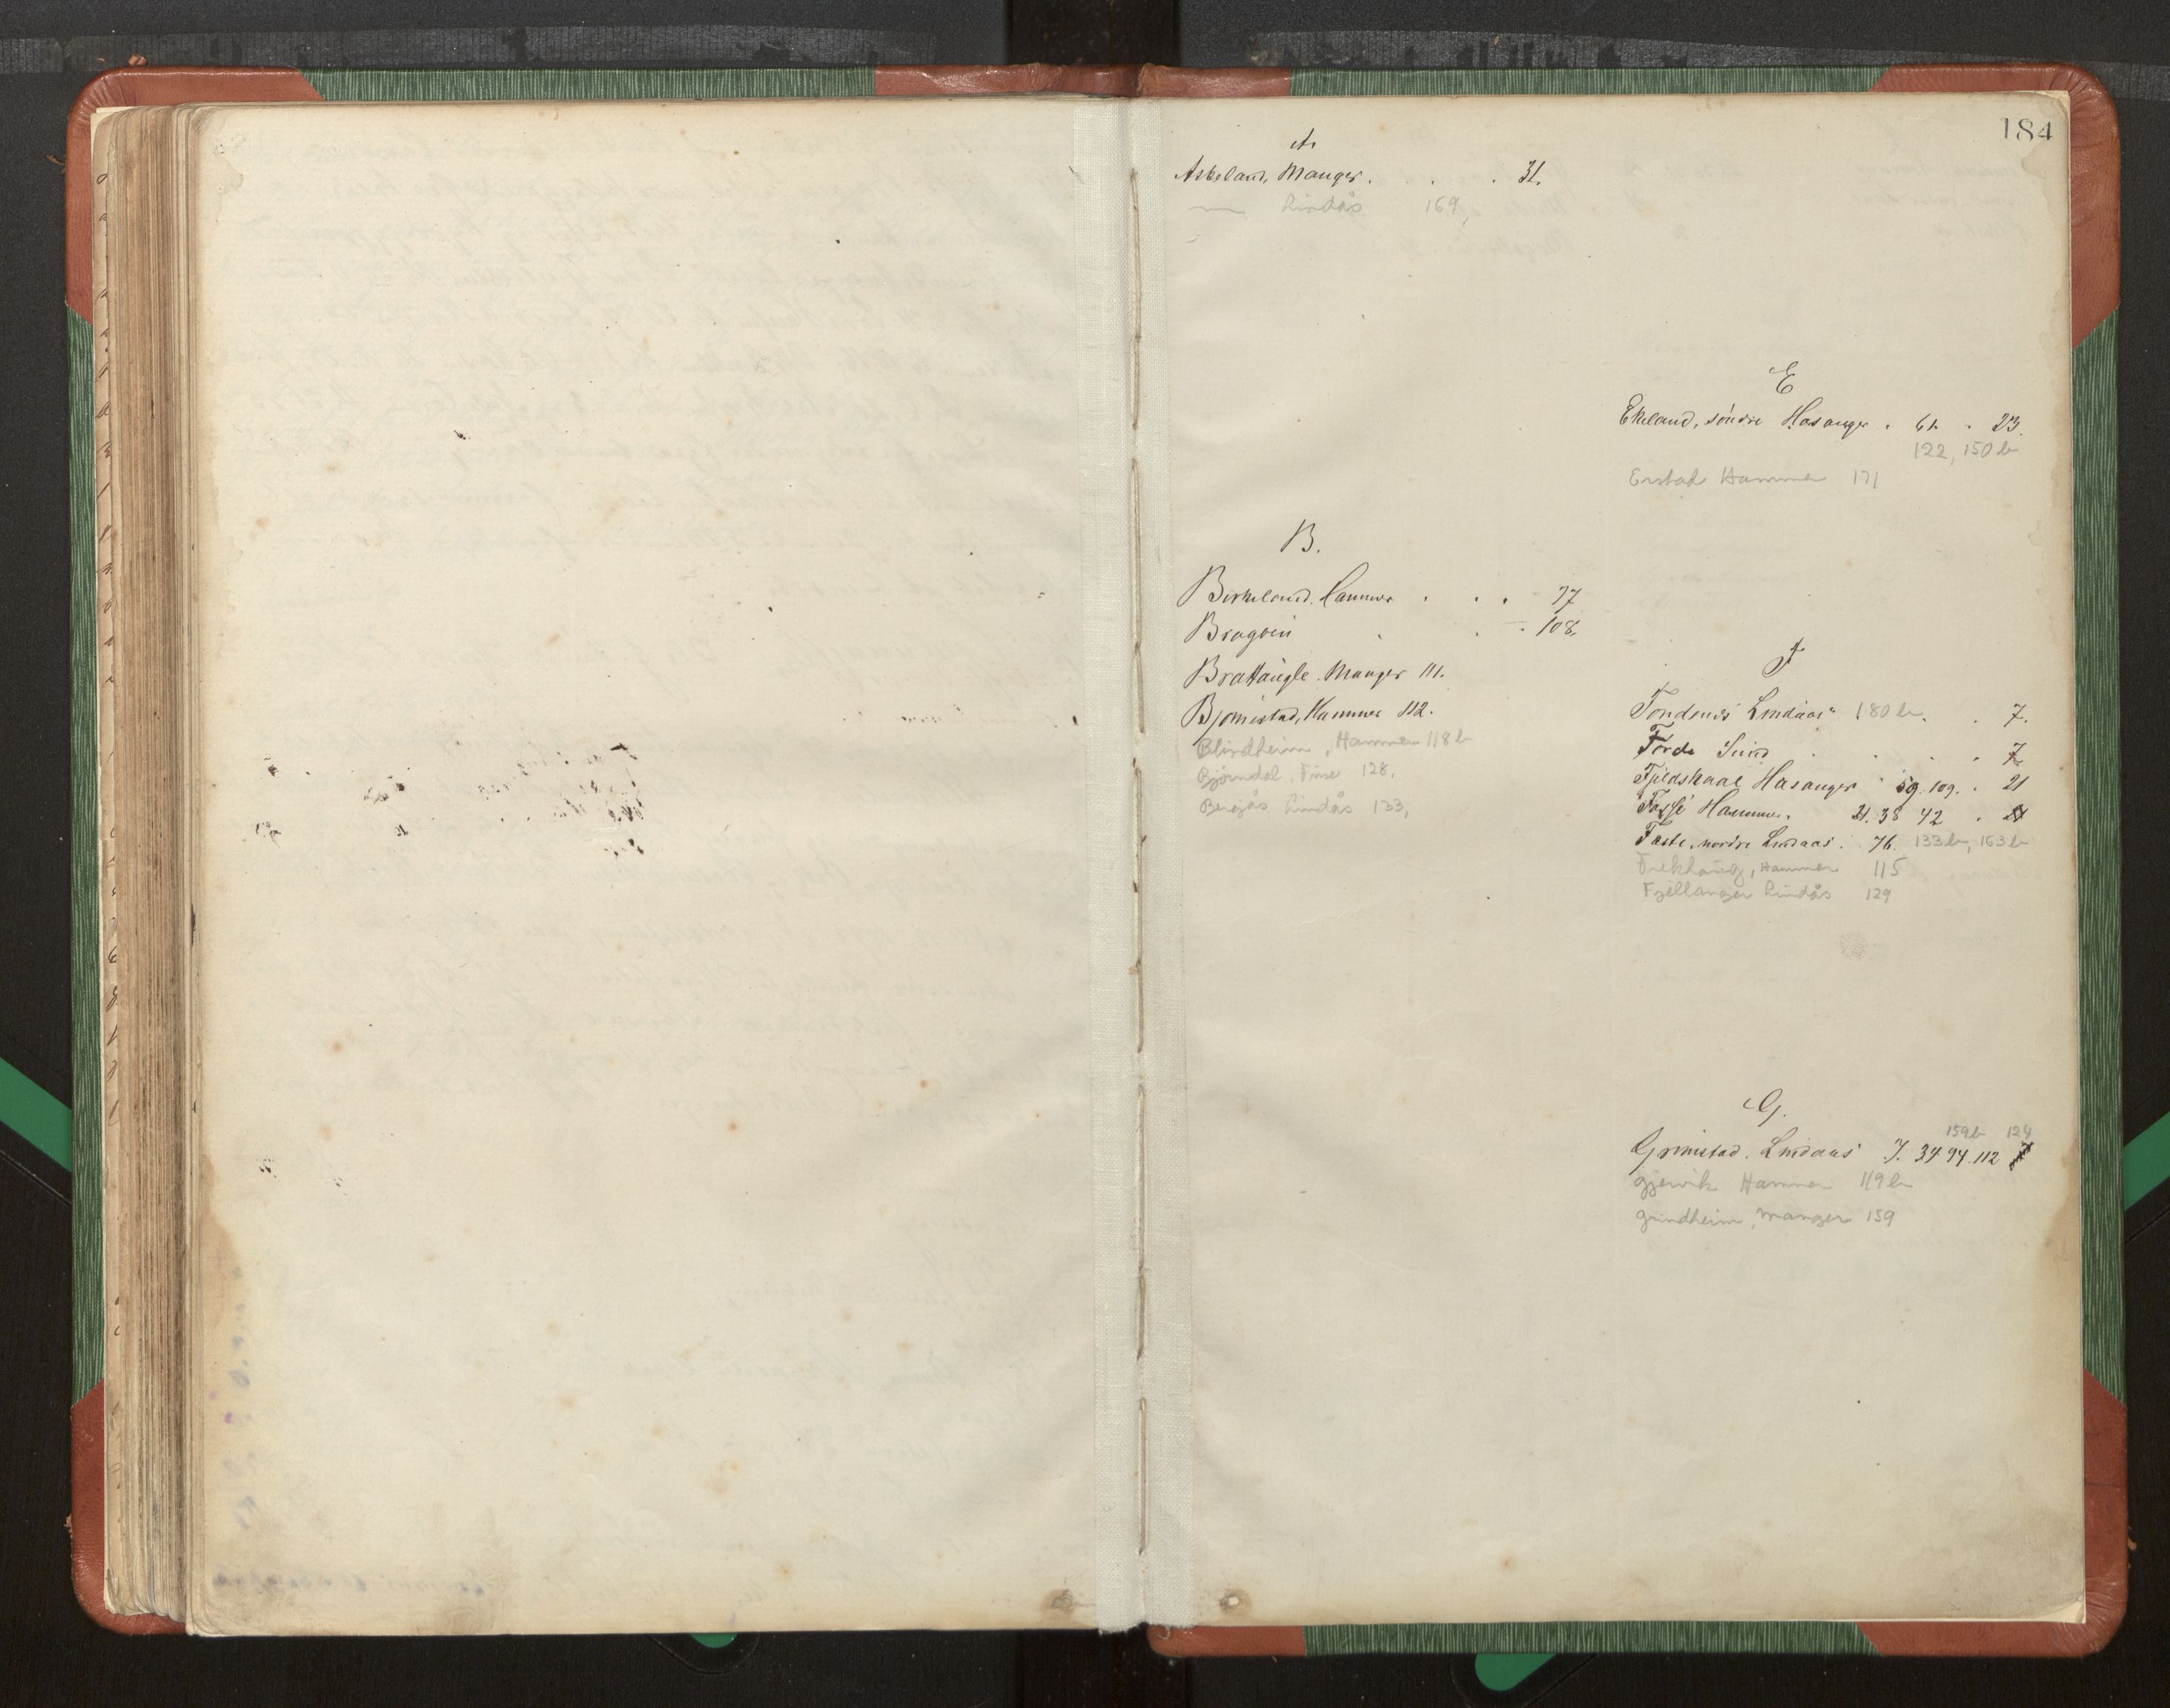 184
A.
Askeland, Manger . . . 31.
— Lindås 169,
B.
Birkeland. Hammer . . . 77
Bragvin . . . 108.
Brattaugle. Manger 111.
Bjørnistad, Hammer 112.
Blindheim, Hammer 118 b
Bjørndal. Fuse 128,
Bergås Lindås 133,
E
Ekeland, søndre Hosanger . 61. . 23.
122, 150 b
Erstad Hammer 171
F
Fondenes Lindaas 180 b. . 7.
Førde Sund . . . . 7
Fjeldskaal Hosanger . 59. 109. . 21
Fosse Hammer. 21. 38 42 .
Foste, nordre Lindaas. 76. 133 b, 163 b
Frekhaug, Hammer 115
Fjellanger Lindås 129
G.
159 b 124
Grimstad. Lindaas 7. 34 94. 112
Gjervik Hammer 119 b
Grindheim, Manger 159